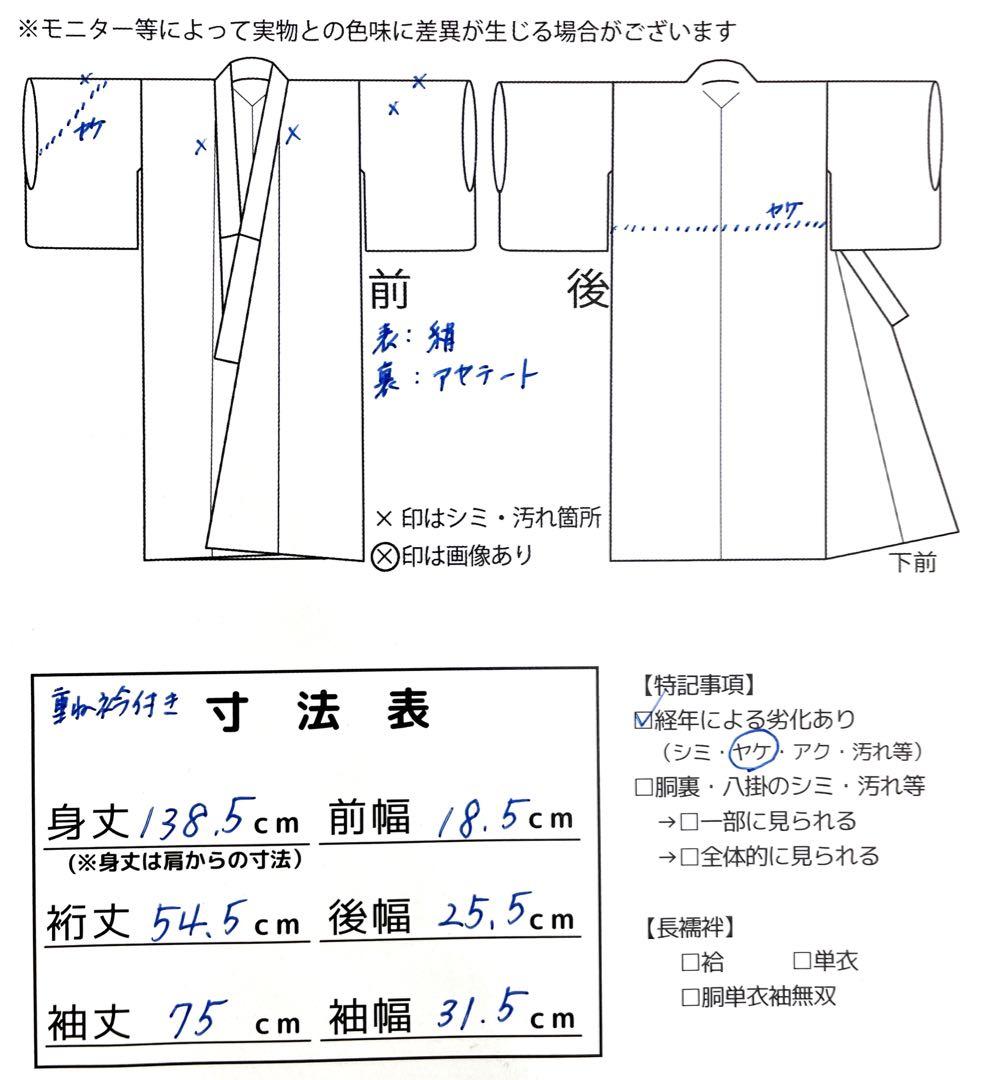 ※モニター等によって実物との色味に差異が生じる場合がございます
ヤケ
ヤケ
前
後
表：絹
裏：アセテート
×印はシミ・汚れ箇所
⊗印は画像あり
下前
重ね衿付き
寸法表
身丈 138.5cm 前幅 18.5cm
(※身丈は肩からの寸法)
裄丈 54.5cm 後幅 25.5cm
袖丈 75 cm 袖幅 31.5cm
【特記事項】
☑経年による劣化あり
（シミ・ヤケ・アク・汚れ等）
□胴裏・八掛のシミ・汚れ等
→□一部に見られる
→□全体的に見られる
【長襦袢】
□袷 □単衣
□胴単衣袖無双